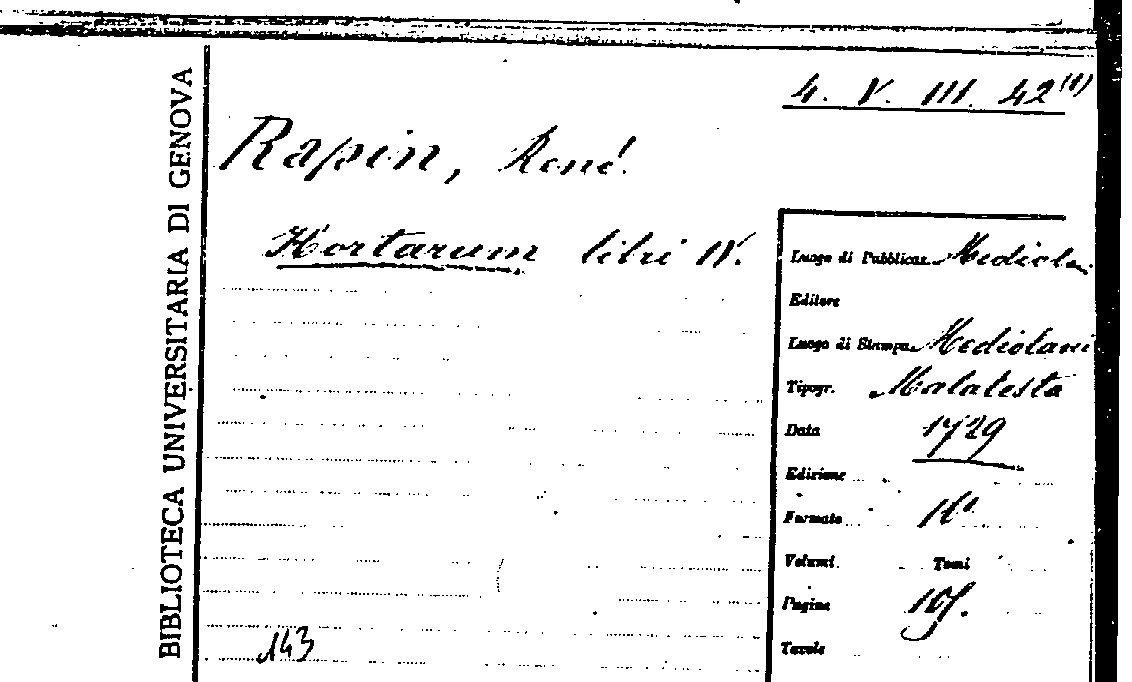 BIBLIOTECA UNIVERSITARIA DI GENOVA
4. V. III. 42 (1)
Rapin, René.
Hortarum libri IV.
Luogo di Pubblicaz. Mediolani
Editore
Luogo di Stampa Mediolani
Tipogr. Malatesta
Data 1729
Edizione
Formato 16°
Volumi Tomi
Pagine
Tavole
143